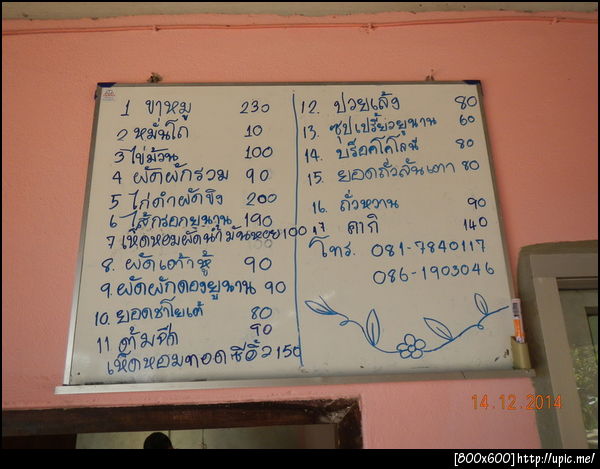 1 ขาหมู 230
2 หมั่นโถ 10
3 ไข่ม้วน 100
4 ผัดผักรวม 90
5 ไก่ดำผัดขิง 200
6 ไส้กรอกยูนาน 190
7 เห็ดหอมผัดน้ำมันหอย 100
8. ผัดเต้าหู้ 90
9. ผัดผักดองยูนาน 90
10. ยอดซาโยเต้ 80
11 ต้มจืด 90
เห็ดหอมทอดซีอิ้ว 150
12. ปวยเล้ง 80
13. ซุปเปรี้ยวยูนาน 60
14. บร็อคโคโลนี 80
15. ยอดถั่วลันเตา 80
16. ถั่วหวาน 90
17 คากิ 140
โทร. 081-7840117
086-1903046
14.12.2014
[800x600]http://upic.me/